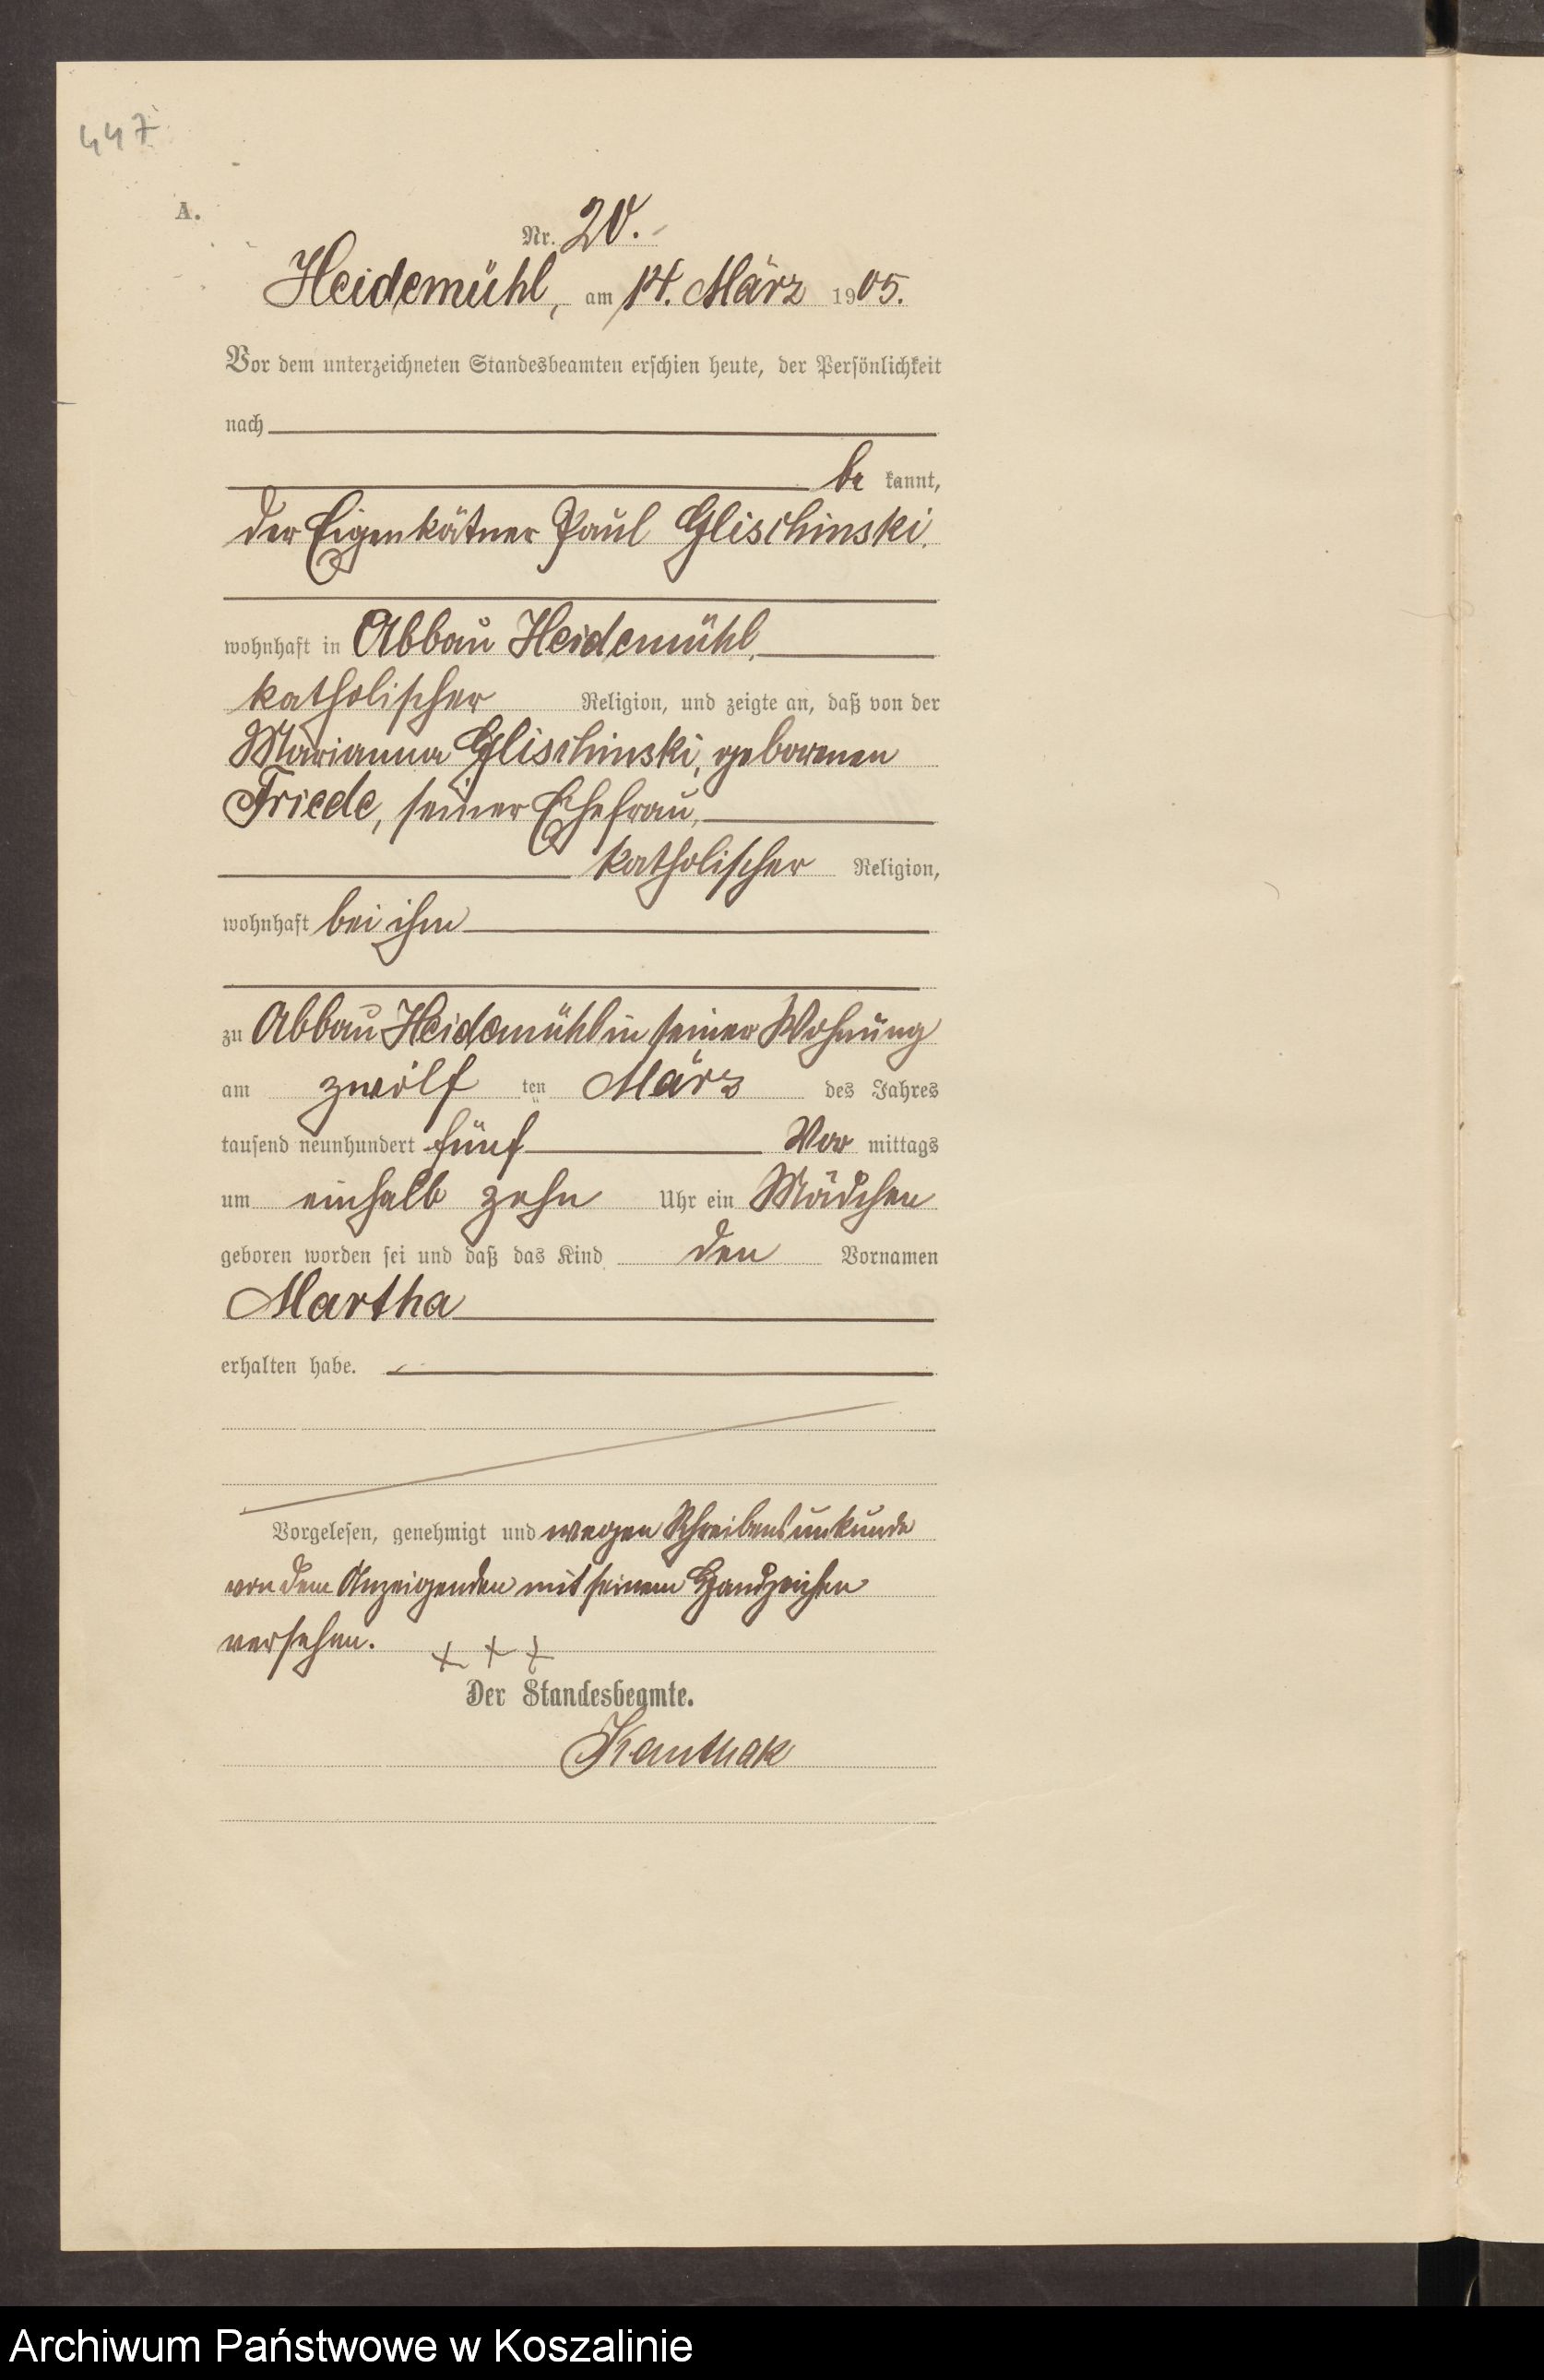 447
A.
Nr. 20.
Heidemühl, am 14. März 1905.
Vor dem unterzeichneten Standesbeamten erschien heute, der Persönlichkeit
nach
be kannt,
der Eigenkätner Paul Glischinski,
wohnhaft in Abbau Heidemühl,
katholischer Religion, und zeigte an, daß von der
Marianna Glischinski, geborenen
Friede, seiner Ehefrau,
katholischer Religion,
wohnhaft bei ihm
zu Abbau Heidemühl in seiner Wohnung
am zwölf ten März des Jahres
tausend neunhundert fünf Vor mittags
um einhalb zehn Uhr ein Mädchen
geboren worden sei und daß das Kind den Vornamen
Martha
erhalten habe.
Vorgelesen, genehmigt und wegen Schreibensunkunde
von dem Anzeigenden mit seinem Handzeichen
versehen. + + +
Der Standesbeamte.
Kanthak
Archiwum Państwowe w Koszalinie